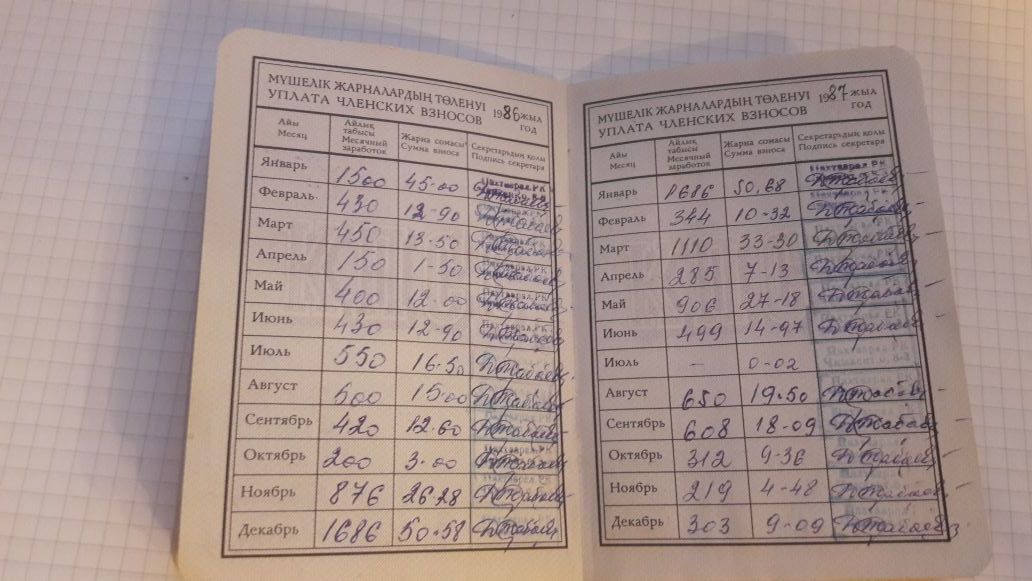 МҮШЕЛІК ЖАРНАЛАРДЫҢ ТӨЛЕНУІ 1986 ЖЫЛ
УПЛАТА ЧЛЕНСКИХ ВЗНОСОВ ГОД
Айы Месяц Айлық табысы Месячный заработок Жарна сомасы Сумма взноса Секретарьдың қолы Подпись секретаря
Январь 1500 45-00
Февраль 430 12-90
Март 450 13-50
Апрель 150 1-50
Май 400 12-00
Июнь 430 12-90
Июль 550 16-50
Август 500 15-00
Сентябрь 420 12-60
Октябрь 200 3-00
Ноябрь 876 26-28
Декабрь 1686 50-58
МҮШЕЛІК ЖАРНАЛАРДЫҢ ТӨЛЕНУІ 1987 ЖЫЛ
УПЛАТА ЧЛЕНСКИХ ВЗНОСОВ ГОД
Айы Месяц Айлық табысы Месячный заработок Жарна сомасы Сумма взноса Секретарьдың қолы Подпись секретаря
Январь 1686 50,68
Февраль 344 10-32
Март 1110 33-30
Апрель 285 7-13
Май 906 27-18
Июнь 499 14-97
Июль - 0-02
Август 650 19-50
Сентябрь 608 18-09
Октябрь 312 9-36
Ноябрь 219 4-48
Декабрь 303 9-09